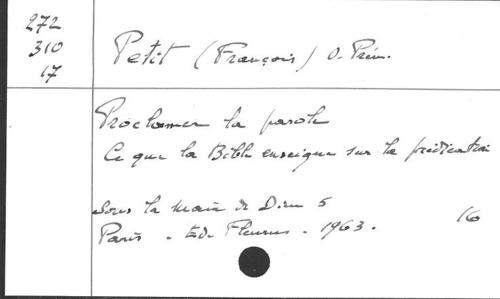 272
310
17
Petit (François) O. Prém.
Proclamer la parole
Ce que la Bible enseigne sur la prédication
Sous la main de Dieu 5
Paris - Ed. Fleurus - 1963.
16